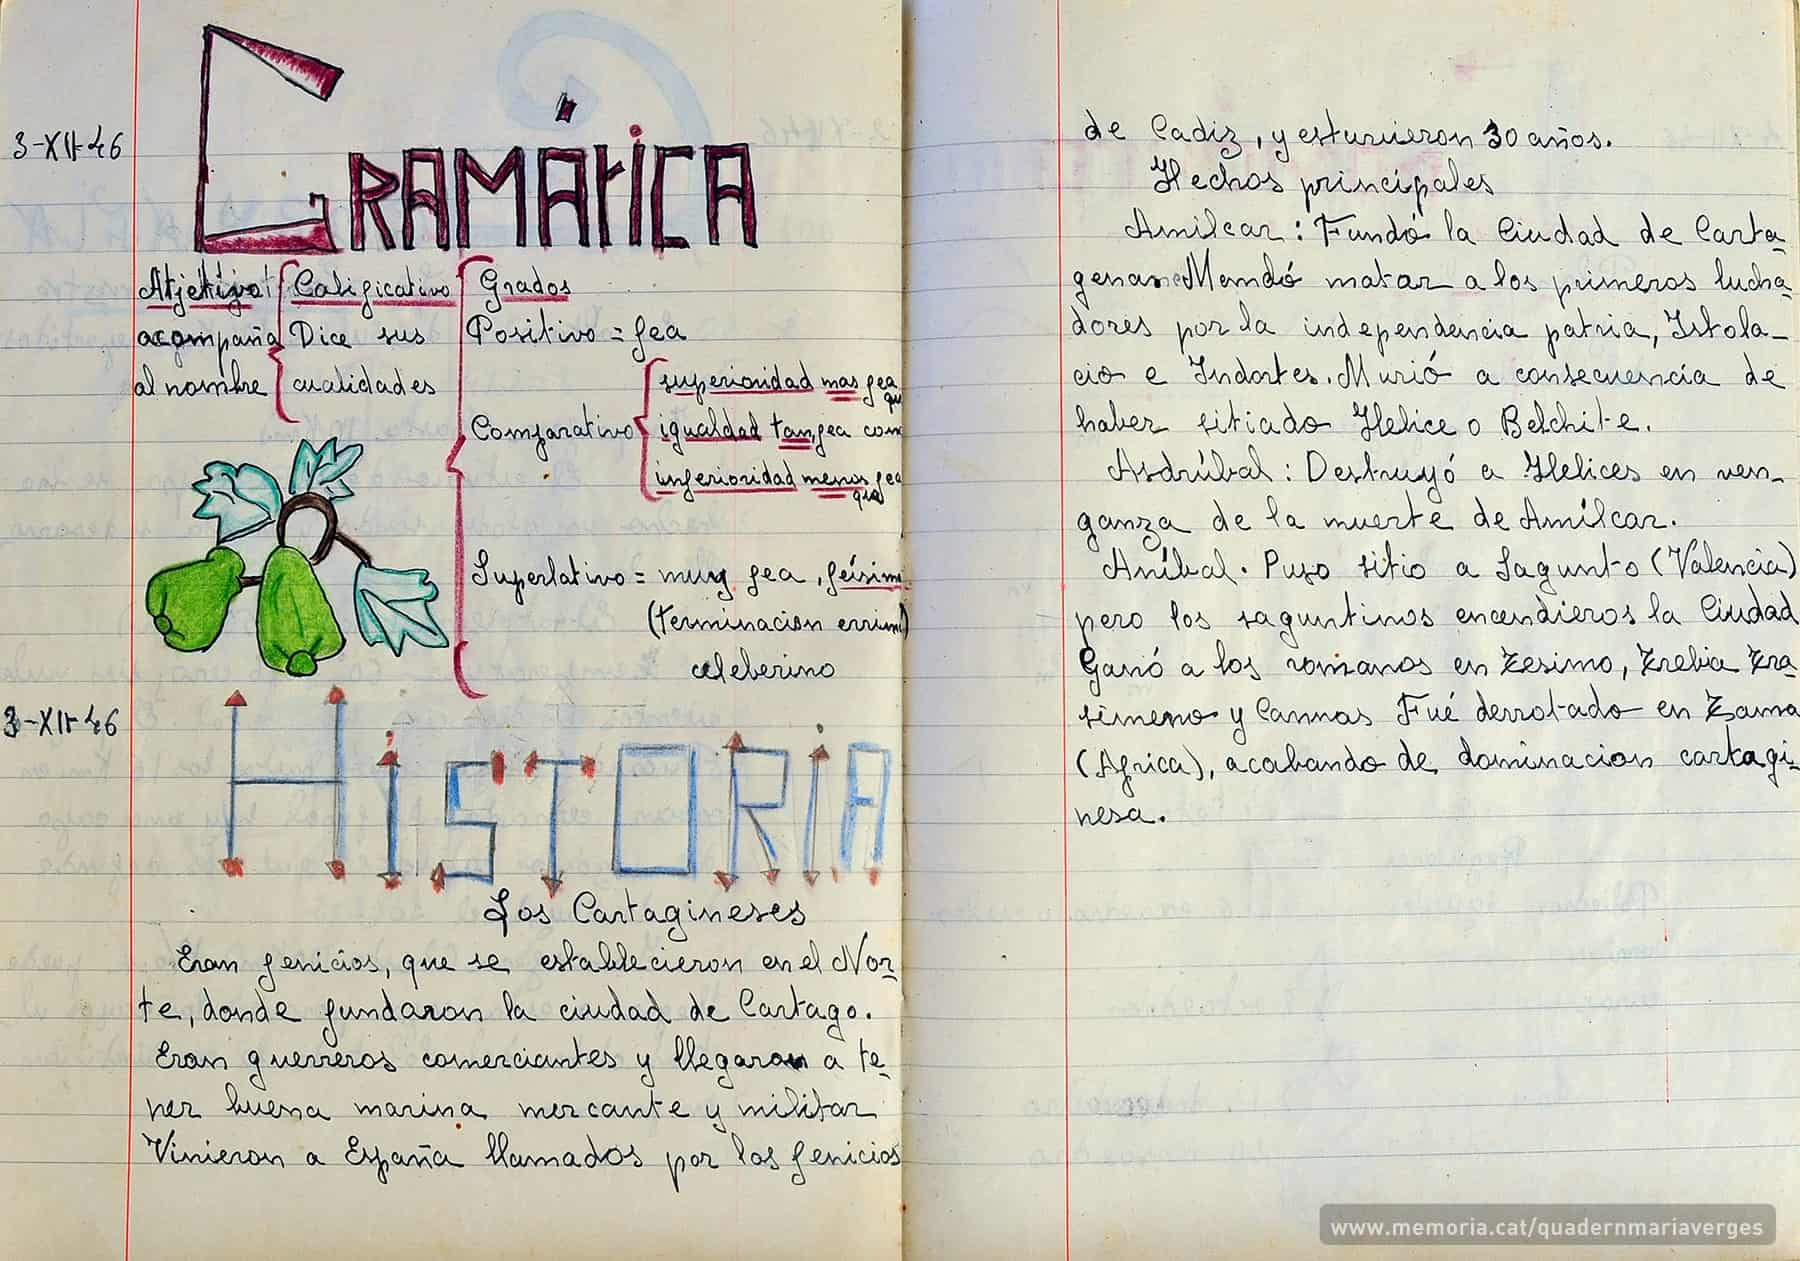 3-XII-46
GRAMÁtiCA
Atjetivo Calificativo Grados
acompaña Dice sus Positivo = fea
al nombre cualidades
superioridad mas fea que
Comparativo igualdad tan fea com
inferioridad menos fea que
Superlativo = muy fea, feísima
(terminacion errimo)
celeberino
3-XII-46
HiSTORiA
Los Cartagineses
Eran fenicios, que se establecieron en el Nor-
te, donde fundaron la ciudad de Cartago.
Eran guerreros comerciantes y llegaron a te-
ner buena marina mercante y militar
Vinieron a España llamados por los fenicios
de Cadiz, y estuvieron 30 años.
Hechos principales
Amilcar: Fundó la Ciudad de Carta-
gena Mandó matar a los primeros lucha-
dores por la independencia patria, Istola-
cio e Indortes. Murió a consecuencia de
haber sitiado Helice o Belchite.
Asdrúbal: Destruyó a Helices en ven-
ganza de la muerte de Amílcar.
Aníbal. Puso sitio a Sagunto (Valencia)
pero los saguntinos encendieros la Ciudad
Ganó a los romanos en Tesimo, Trebia Tra-
simeno y Cannas Fué derrotado en Zama
(Africa), acabando de dominacion cartagi-
nesa.
www.memoria.cat/quadernmariaverges